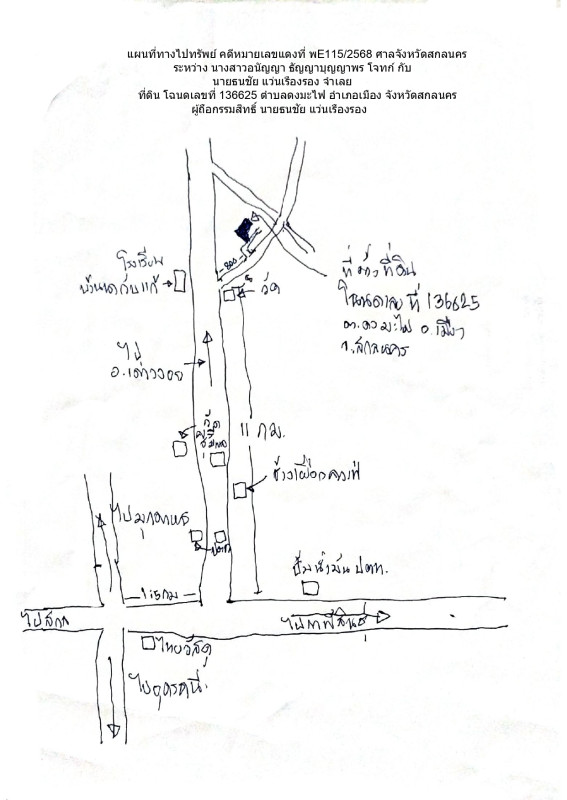 แผนที่ทางไปทรัพย์ คดีหมายเลขแดงที่ พE115/2568 ศาลจังหวัดสกลนคร
ระหว่าง นางสาวอนัญญา ธัญญาบุญญาพร โจทก์ กับ
นายธนชัย แว่นเรืองรอง จำเลย
ที่ดิน โฉนดเลขที่ 136625 ตำบลดงมะไฟ อำเภอเมือง จังหวัดสกลนคร
ผู้ถือกรรมสิทธิ์ นายธนชัย แว่นเรืองรอง
โรงเรียน
800
วัด
ที่ตั้งที่ดิน
โฉนดเลขที่ 136625
ต.ดงมะไฟ อ.เมือง
จ.สกลนคร
ไป
อ.เต่างอย
วัด
11 กม.
ช้างเผือกคาเฟ่
ไปมุกดาหาร
ปั๊มน้ำมัน ปตท.
1.5 กม
ไปกาฬสินธุ์
ไทยวัสดุ
ไปอุดรธานี